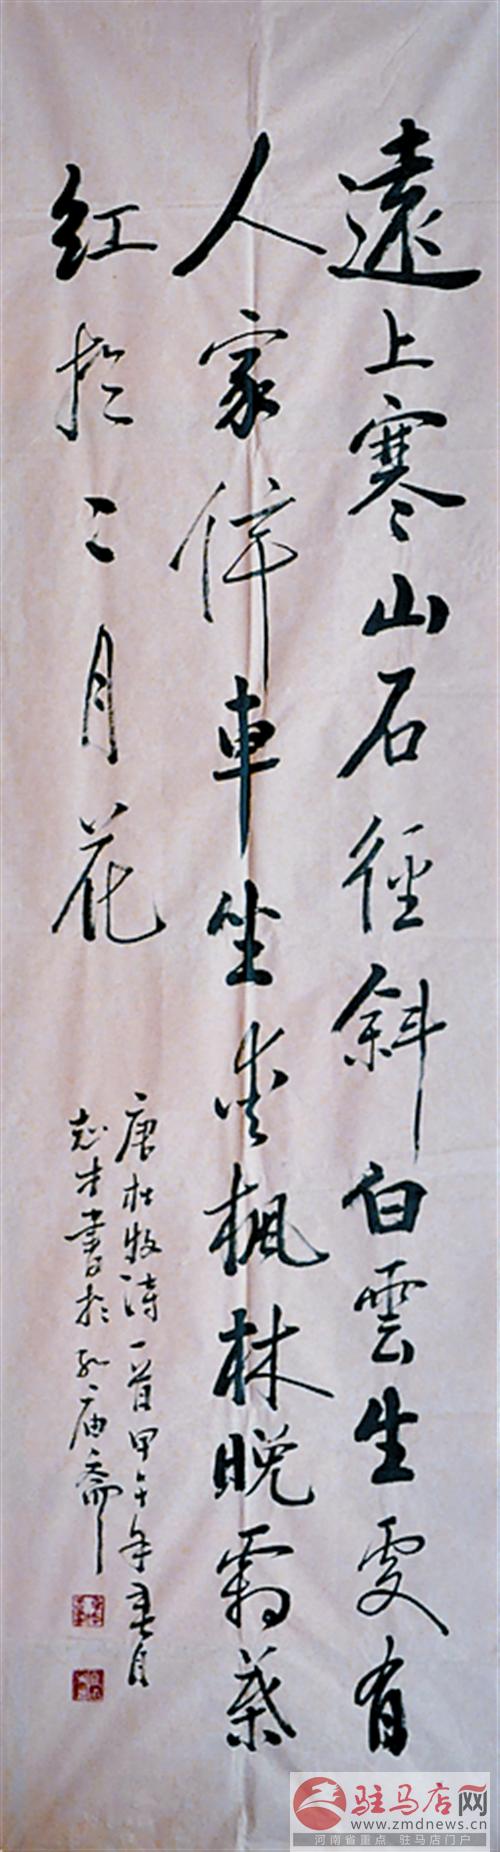 遠上寒山石徑斜白雲生處有
人家停車坐愛楓林晚霜葉
红於二月花
唐杜牧詩一首甲午年春月
志才書於孔庙斋
驻马店网
www.zmdnews.cn
河南省重点 驻马店门户